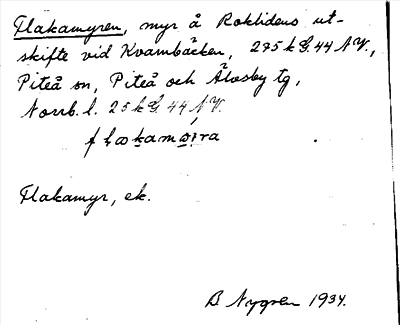 Flakamyren, myr å Roklidens ut-
skifte vid Kvambäcken, 275 k G. 44 NV.,
Piteå sn, Piteå och Älvsby tg,
Norrb. l. 25 k G. 44 NV.
Flakamyr, ek.
B Nygren 1934.